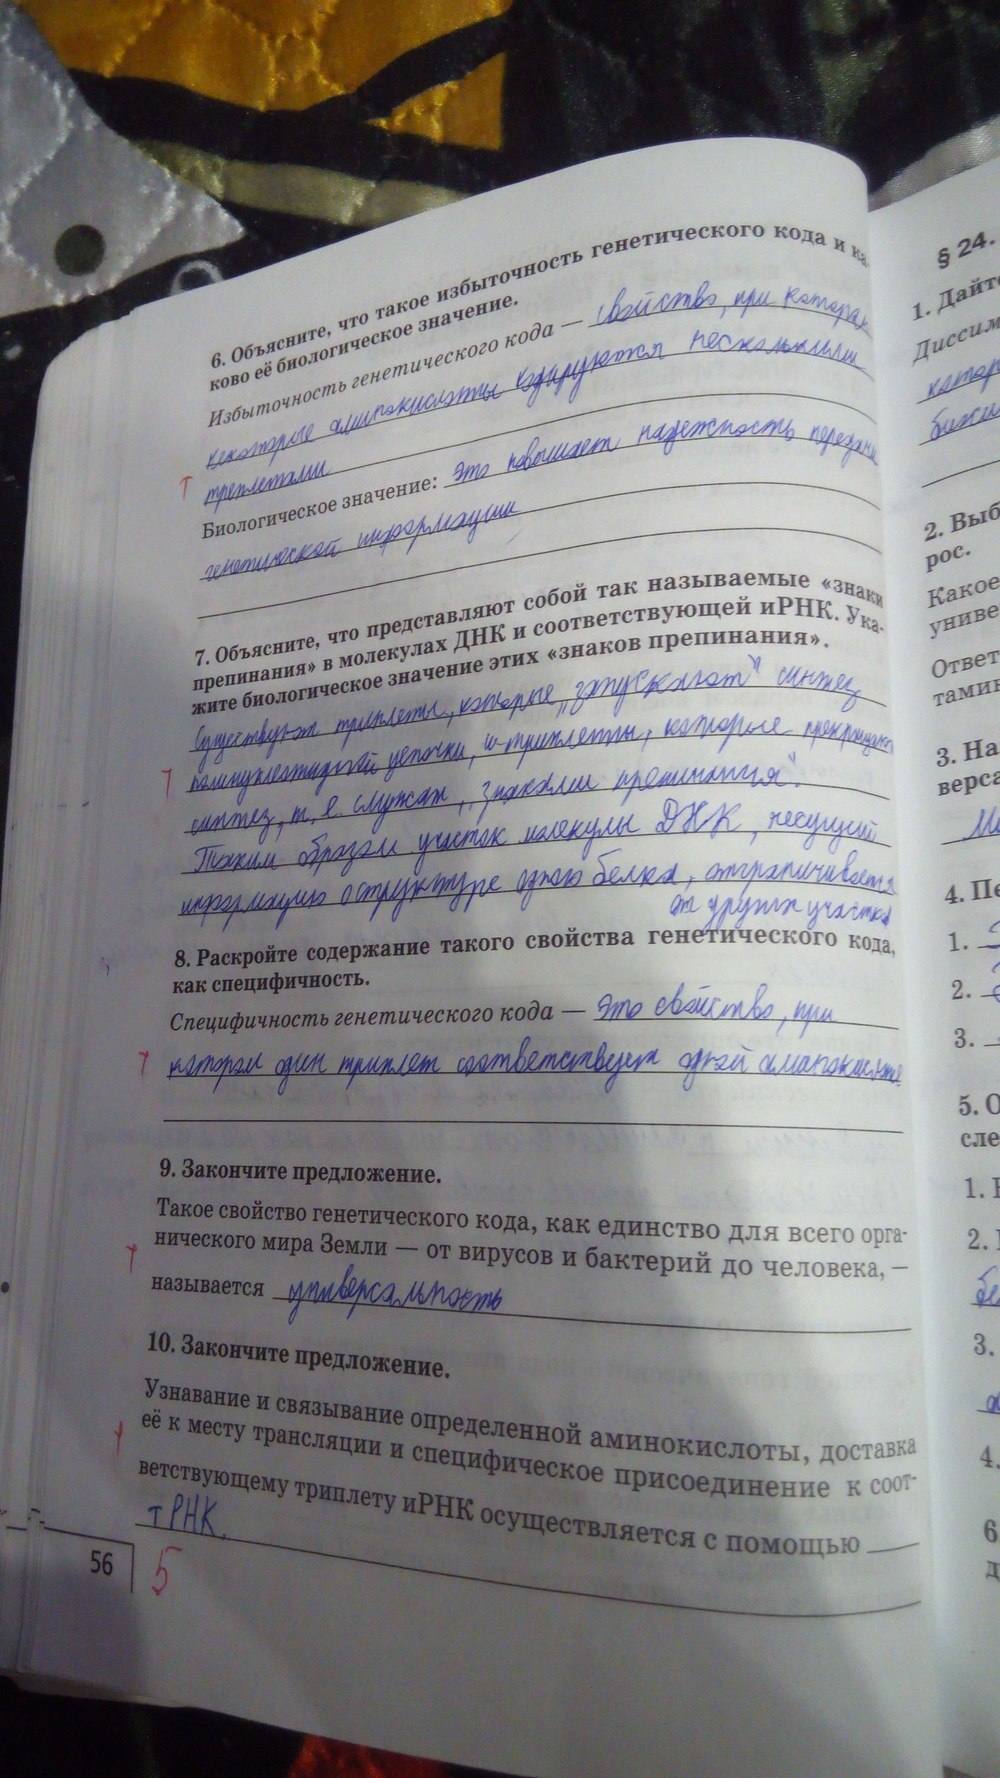 6. Объясните, что такое избыточность генетического кода и ка-
ково её биологическое значение.
Избыточность генетического кода — свойство, при котором
некоторые аминокислоты кодируются несколькими
триплетами
Биологическое значение: это повышает надежность передачи
генетической информации
7. Объясните, что представляют собой так называемые «знаки
препинания» в молекулах ДНК и соответствующей иРНК. Ука-
жите биологическое значение этих «знаков препинания».
Существуют триплеты, которые „запускают" синтез
полинуклеотидной цепочки, и триплеты, которые прекращают
синтез, т. е. служат „знаками препинания".
Таким образом участок молекулы ДНК, несущий
информацию о структуре одного белка, отграничивается
от других участков
8. Раскройте содержание такого свойства генетического кода,
как специфичность.
Специфичность генетического кода — это свойство, при
котором один триплет соответствует одной аминокислоте
9. Закончите предложение.
Такое свойство генетического кода, как единство для всего орга-
нического мира Земли — от вирусов и бактерий до человека, —
называется универсальность
10. Закончите предложение.
Узнавание и связывание определенной аминокислоты, доставка
её к месту трансляции и специфическое присоединение к соот-
ветствующему триплету иРНК осуществляется с помощью
тРНК.
56
5
§ 24.
1. Дайте
Диссим
2. Выб
рос.
Какое
униве
Ответ
тамин
3. На
верса
4. Пе
1.
2.
3.
5. О
сле
1.
2.
3.
4.
6.